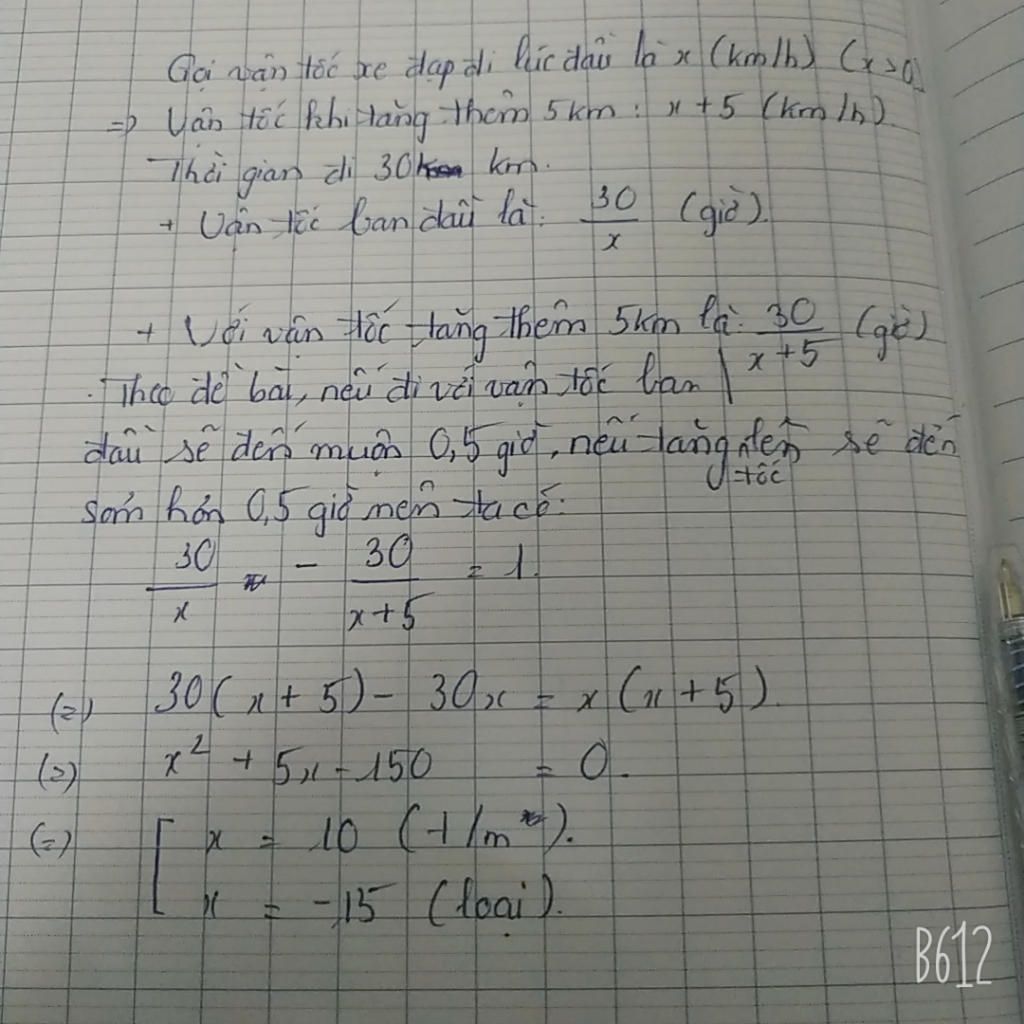 Gọi vận tốc xe đạp đi lúc đầu là x (km/h) (x>0)
=> Vận tốc khi tăng thêm 5km : x+5 (km/h)
Thời gian đi 30 km.
+ Vận tốc ban đầu là: 30/x (giờ).
+ Với vận tốc tăng thêm 5km là: 30/(x+5) (giờ)
Theo đề bài, nếu đi với vận tốc ban
đầu sẽ đến muộn 0,5 giờ, nếu tăng tốc sẽ đến
sớm hơn 0,5 giờ nên ta có:
30/x - 30/(x+5) = 1.
(=) 30(x+5) - 30x = x(x+5).
(=) x² + 5x - 150 = 0.
(=) [ x = 10 (t/m).
x = -15 (loại).
B612